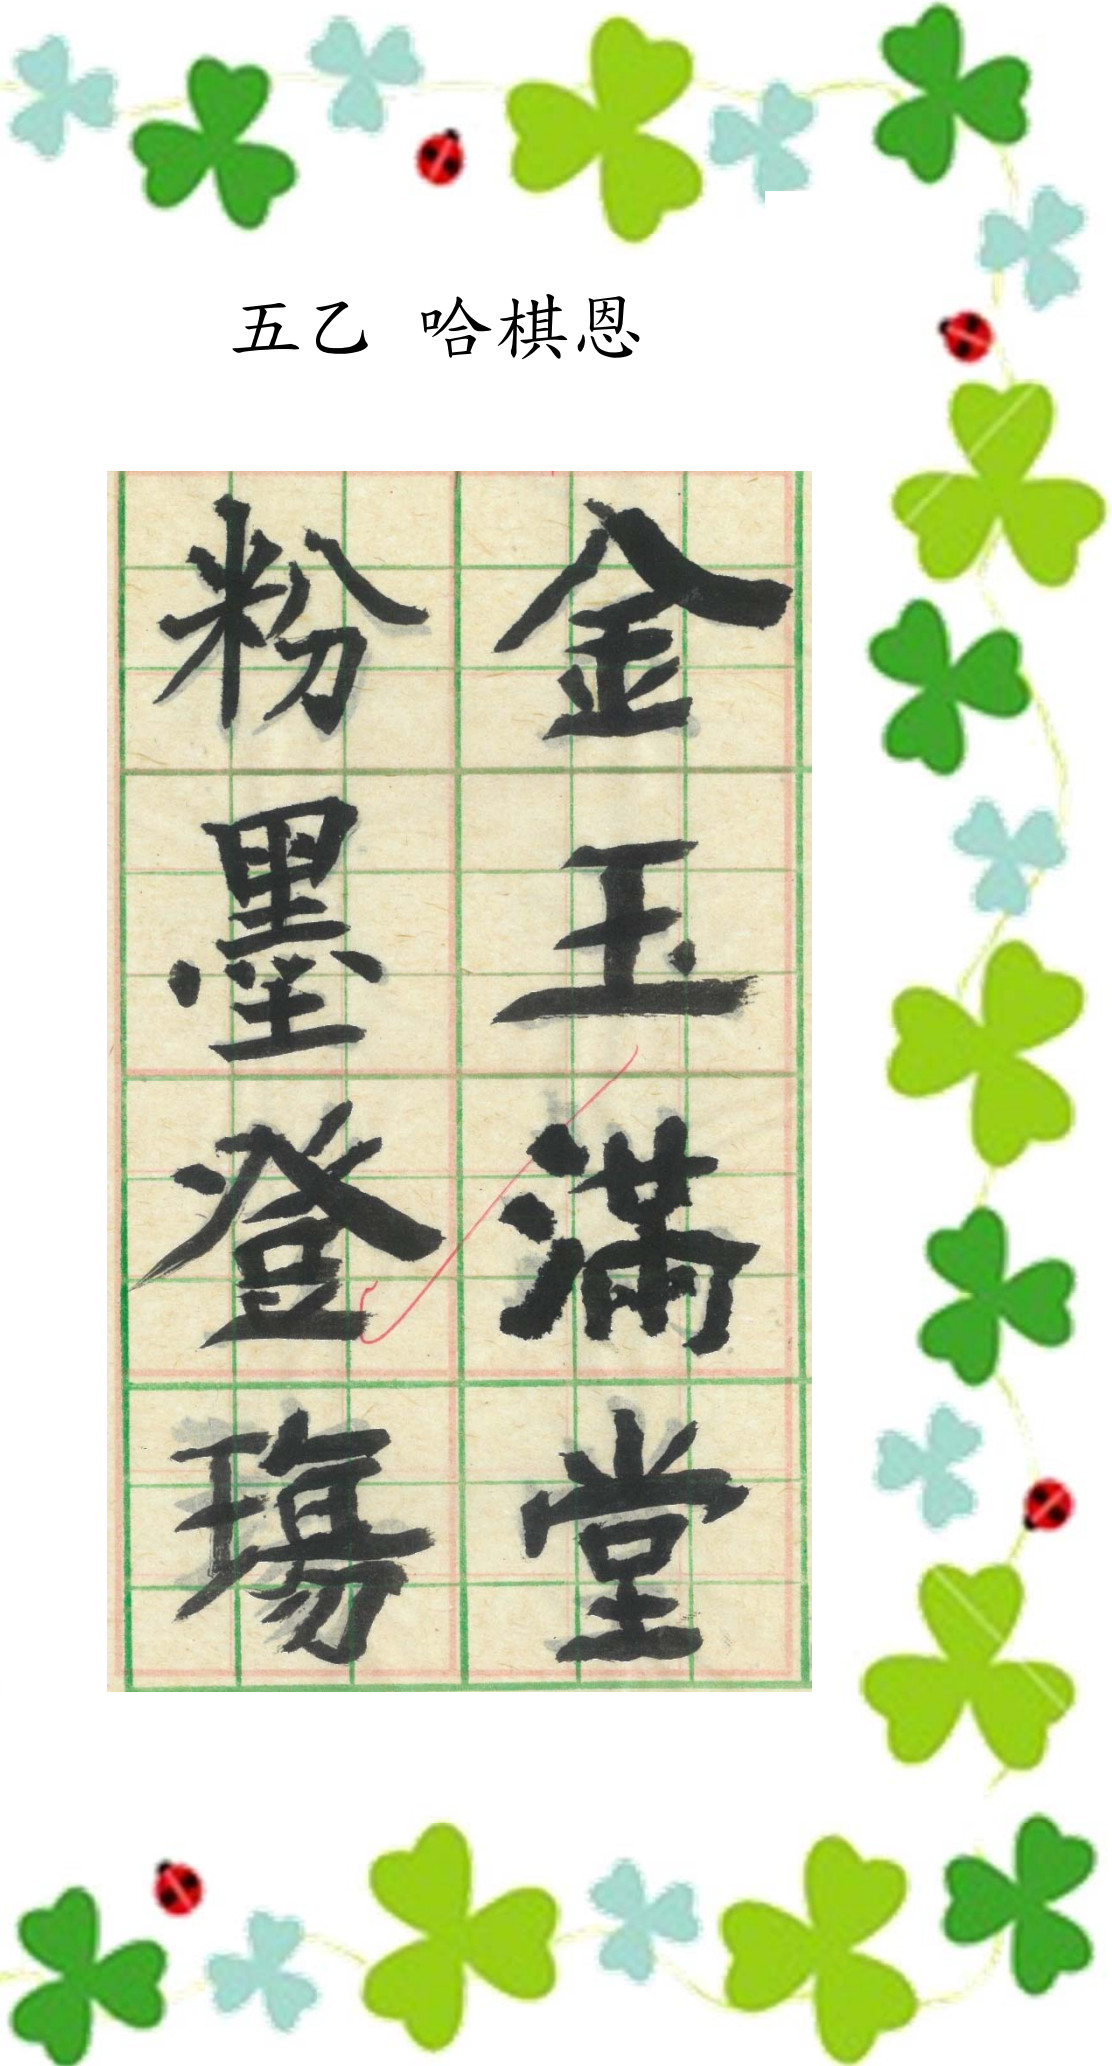 五乙 哈棋恩
金玉滿堂
粉墨登場